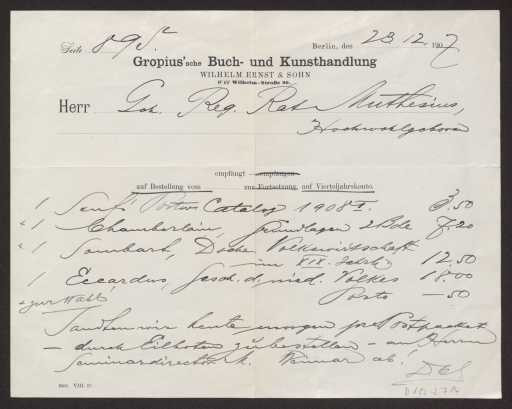 Seite 895.
Berlin, den 23.12. 1907
Gropius'sche Buch- und Kunsthandlung
WILHELM ERNST & SOHN
W 66 Wilhelm-Straße 90.
Herr Geh. Reg. Rat Muthesius,
Hochwohlgeboren
empfingt empfangen
auf Bestellung vom zur Fortsetzung, auf Vierteljahrskonto.
1 Senfs Catalog 1908 I. 3.50
1 Chamberlain, Grundlagen 2 Bde 7.20
1 Sombart, Dtsche Volkswirtschaft
im XIX. Jahrh. 12.50
1 Eccardus, Gesch. d. nied. Volkes 18.00
zur Wahl! Porto —50
Sandten wir heute morgen per Postpacket
— durch Eilboten zu bestellen — an Herrn
Seminardirector ab!